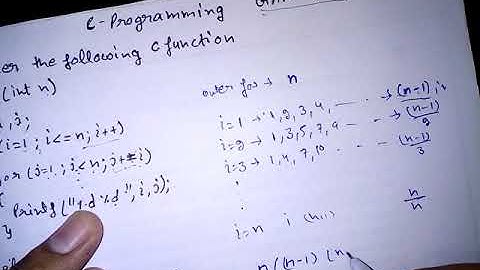 C-Programming
er the following C function
(int n)
outer for → n
, j;
(i=1; i<=n; i++)
for (j=1; j<n; j+=i)
printf("%d %d", i, j);
}
i=1 → 1, 2, 3, 4, — . . → (n-1)
i=2 → 1, 3, 5, 7, 9 — . . → (n-1)/2
i=3 → 1, 4, 7, 10 . . . → (n-1)/3
i=n 1 n/n
n((n-1) (n